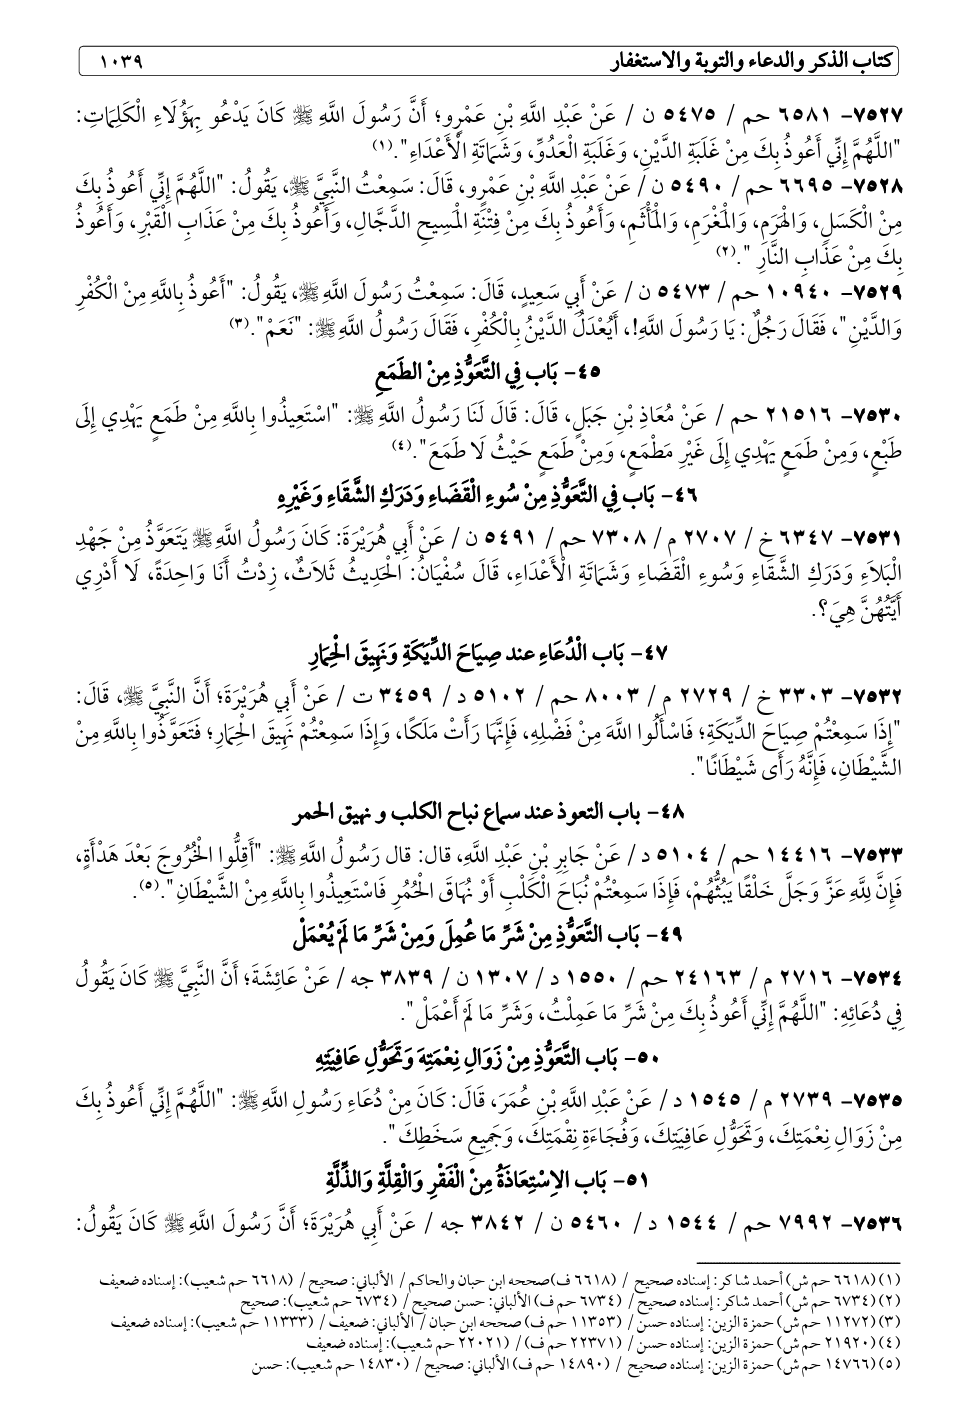 كتاب الذكر والدعاء والتوبة والاستغفار ١٠٣٩
٧٥٢٧- ٦٥٨١ حم / ٥٤٧٥ ن / عَنْ عَبْدِ اللَّهِ بْنِ عَمْرٍو؛ أَنَّ رَسُولَ اللَّهِ ﷺ كَانَ يَدْعُو بِهَؤُلَاءِ الْكَلِمَاتِ:
"اللَّهُمَّ إِنِّي أَعُوذُ بِكَ مِنْ غَلَبَةِ الدَّيْنِ، وَغَلَبَةِ الْعَدُوِّ، وَشَمَاتَةِ الْأَعْدَاءِ".(١)
٧٥٢٨- ٦٦٩٥ حم / ٥٤٩٠ ن / عَنْ عَبْدِ اللَّهِ بْنِ عَمْرٍو، قَالَ: سَمِعْتُ النَّبِيَّ ﷺ، يَقُولُ: "اللَّهُمَّ إِنِّي أَعُوذُ بِكَ
مِنْ الْكَسَلِ، وَالْهَرَمِ، وَالْمَغْرَمِ، وَالْمَأْثَمِ، وَأَعُوذُ بِكَ مِنْ فِتْنَةِ الْمَسِيحِ الدَّجَّالِ، وَأَعُوذُ بِكَ مِنْ عَذَابِ الْقَبْرِ، وَأَعُوذُ
بِكَ مِنْ عَذَابِ النَّارِ ".(٢)
٧٥٢٩- ١٠٩٤٠ حم / ٥٤٧٣ ن / عَنْ أَبِي سَعِيدٍ، قَالَ: سَمِعْتُ رَسُولَ اللَّهِ ﷺ، يَقُولُ: "أَعُوذُ بِاللَّهِ مِنْ الْكُفْرِ
وَالدَّيْنِ"، فَقَالَ رَجُلٌ: يَا رَسُولَ اللَّهِ!، أَيُعْدَلُ الدَّيْنُ بِالْكُفْرِ، فَقَالَ رَسُولُ اللَّهِ ﷺ: "نَعَمْ".(٣)
٤٥- بَاب فِي التَّعَوُّذِ مِنْ الطَمَعِ
٧٥٣٠- ٢١٥١٦ حم / عَنْ مُعَاذِ بْنِ جَبَلٍ، قَالَ: قَالَ لَنَا رَسُولُ اللَّهِ ﷺ: "اسْتَعِيذُوا بِاللَّهِ مِنْ طَمَعٍ يَهْدِي إِلَى
طَبْعٍ، وَمِنْ طَمَعٍ يَهْدِي إِلَى غَيْرِ مَطْمَعٍ، وَمِنْ طَمَعٍ حَيْثُ لَا طَمَعَ".(٤)
٤٦- بَاب فِي التَّعَوُّذِ مِنْ سُوءِ الْقَضَاءِ وَدَرَكِ الشَّقَاءِ وَغَيْرِهِ
٧٥٣١- ٦٣٤٧ خ / ٢٧٠٧ م / ٧٣٠٨ حم / ٥٤٩١ ن / عَنْ أَبِي هُرَيْرَةَ: كَانَ رَسُولُ اللَّهِ ﷺ يَتَعَوَّذُ مِنْ جَهْدِ
الْبَلَاءِ وَدَرَكِ الشَّقَاءِ وَسُوءِ الْقَضَاءِ وَشَمَاتَةِ الْأَعْدَاءِ، قَالَ سُفْيَانُ: الْحَدِيثُ ثَلَاثٌ، زِدْتُ أَنَا وَاحِدَةً، لَا أَدْرِي
أَيَّتُهُنَّ هِيَ؟.
٤٧- بَاب الْدُعَاءِ عند صِيَاحَ الدِّيَكَةِ وَنَهِيقَ الْحِمَارِ
٧٥٣٢- ٣٣٠٣ خ / ٢٧٢٩ م / ٨٠٠٣ حم / ٥١٠٢ د / ٣٤٥٩ ت / عَنْ أَبِي هُرَيْرَةَ؛ أَنَّ النَّبِيَّ ﷺ، قَالَ:
"إِذَا سَمِعْتُمْ صِيَاحَ الدِّيَكَةِ؛ فَاسْأَلُوا اللَّهَ مِنْ فَضْلِهِ، فَإِنَّهَا رَأَتْ مَلَكًا، وَإِذَا سَمِعْتُمْ نَهِيقَ الْحِمَارِ؛ فَتَعَوَّذُوا بِاللَّهِ مِنْ
الشَّيْطَانِ، فَإِنَّهُ رَأَى شَيْطَانًا".
٤٨- باب التعوذ عند سماع نباح الكلب و نهيق الحمر
٧٥٣٣- ١٤٤١٦ حم / ٥١٠٤ د / عَنْ جَابِرِ بْنِ عَبْدِ اللَّهِ، قال: قال رَسُولُ اللَّهِ ﷺ: "أَقِلُّوا الْخُرُوجَ بَعْدَ هَدْأَةٍ،
فَإِنَّ لِلَّهِ عَزَّ وَجَلَّ خَلْقًا يَبُثُّهُمْ، فَإِذَا سَمِعْتُمْ نُبَاحَ الْكَلْبِ أَوْ نُهَاقَ الْحُمُرِ فَاسْتَعِيذُوا بِاللَّهِ مِنْ الشَّيْطَانِ".(٥).
٤٩- بَاب التَّعَوُّذِ مِنْ شَرِّ مَا عُمِلَ وَمِنْ شَرِّ مَا لَمْ يُعْمَلْ
٧٥٣٤- ٢٧١٦ م / ٢٤١٦٣ حم / ١٥٥٠ د / ١٣٠٧ ن / ٣٨٣٩ جه / عَنْ عَائِشَةَ؛ أَنَّ النَّبِيَّ ﷺ كَانَ يَقُولُ
فِي دُعَائِهِ: "اللَّهُمَّ إِنِّي أَعُوذُ بِكَ مِنْ شَرِّ مَا عَمِلْتُ، وَشَرِّ مَا لَمْ أَعْمَلْ".
٥٠- بَاب التَّعَوُّذِ مِنْ زَوَالِ نِعْمَتِهِ وَتَحَوُّلِ عَافِيَتِهِ
٧٥٣٥- ٢٧٣٩ م / ١٥٤٥ د / عَنْ عَبْدِ اللَّهِ بْنِ عُمَرَ، قَالَ: كَانَ مِنْ دُعَاءِ رَسُولِ اللَّهِ ﷺ: "اللَّهُمَّ إِنِّي أَعُوذُ بِكَ
مِنْ زَوَالِ نِعْمَتِكَ، وَتَحَوُّلِ عَافِيَتِكَ، وَفُجَاءَةِ نِقْمَتِكَ، وَجَمِيعِ سَخَطِكَ".
٥١- بَاب الاِسْتِعَاذَةُ مِنْ الْفَقْرِ وَالْقِلَّةِ وَالذِّلَّةِ
٧٥٣٦- ٧٩٩٢ حم / ١٥٤٤ د / ٥٤٦٠ ن / ٣٨٤٢ جه / عَنْ أَبِي هُرَيْرَةَ؛ أَنَّ رَسُولَ اللَّهِ ﷺ كَانَ يَقُولُ:
(١) (٦٦١٨ حم ش) أحمد شاكر: إسناده صحيح / (٦٦١٨ ف)صححه ابن حبان والحاكم / الألباني: صحيح / (٦٦١٨ حم شعيب): إسناده ضعيف
(٢) (٦٧٣٤ حم ش) أحمد شاكر: إسناده صحيح / (٦٧٣٤ حم ف) الألباني: حسن صحيح / (٦٧٣٤ حم شعيب): صحيح
(٣) (١١٢٧٢ حم ش) حمزة الزين: إسناده حسن / (١١٣٥٣ حم ف) صححه ابن حبان / الألباني: ضعيف / (١١٣٣٣ حم شعيب): إسناده ضعيف
(٤) (٢١٩٢٠ حم ش) حمزة الزين: إسناده حسن / (٢٢٣٧١ حم ف) / (٢٢٠٢١ حم شعيب): إسناده ضعيف
(٥) (١٤٧٦٦ حم ش) حمزة الزين: إسناده صحيح / (١٤٨٩٠ حم ف) الألباني: صحيح / (١٤٨٣٠ حم شعيب): حسن